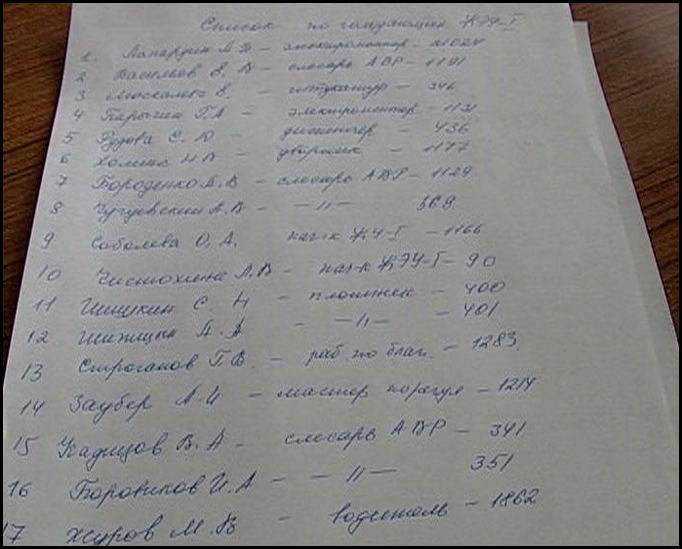 Список по голодающим ЖЭУ-1
1. А. Ж - электромонтер - 21024
2 Васильев В. В - слесарь АВР - 1191
3 Москалева Е. - штукатур - 346
4 Парыгин Г.А - электромонтер - 1131
5 Рудова С. Ю - диспетчер - 436
6 Холина Н В - дворник - 1177
7 Бороденко А. В - слесарь АВР - 1129
8 Чугуевский А. В - -//- 369
9 Соболева О. А. нач-к ЖУ-1 - 1166
10 Чистохина Л. В - нач-к ЖЭУ-1 - 90
11 Шишкин С. Н - плотник - 400
12 Шипицын А. А - -//- - 401
13 Строганов Г. В. - раб. по благ. - 1283
14 Заубер А. И - мастер - 1214
15 Кадицов В. А - слесарь АВР - 341
16 Боровиков И. А - -//- 351
17 Жуков М. В - водитель - 1862